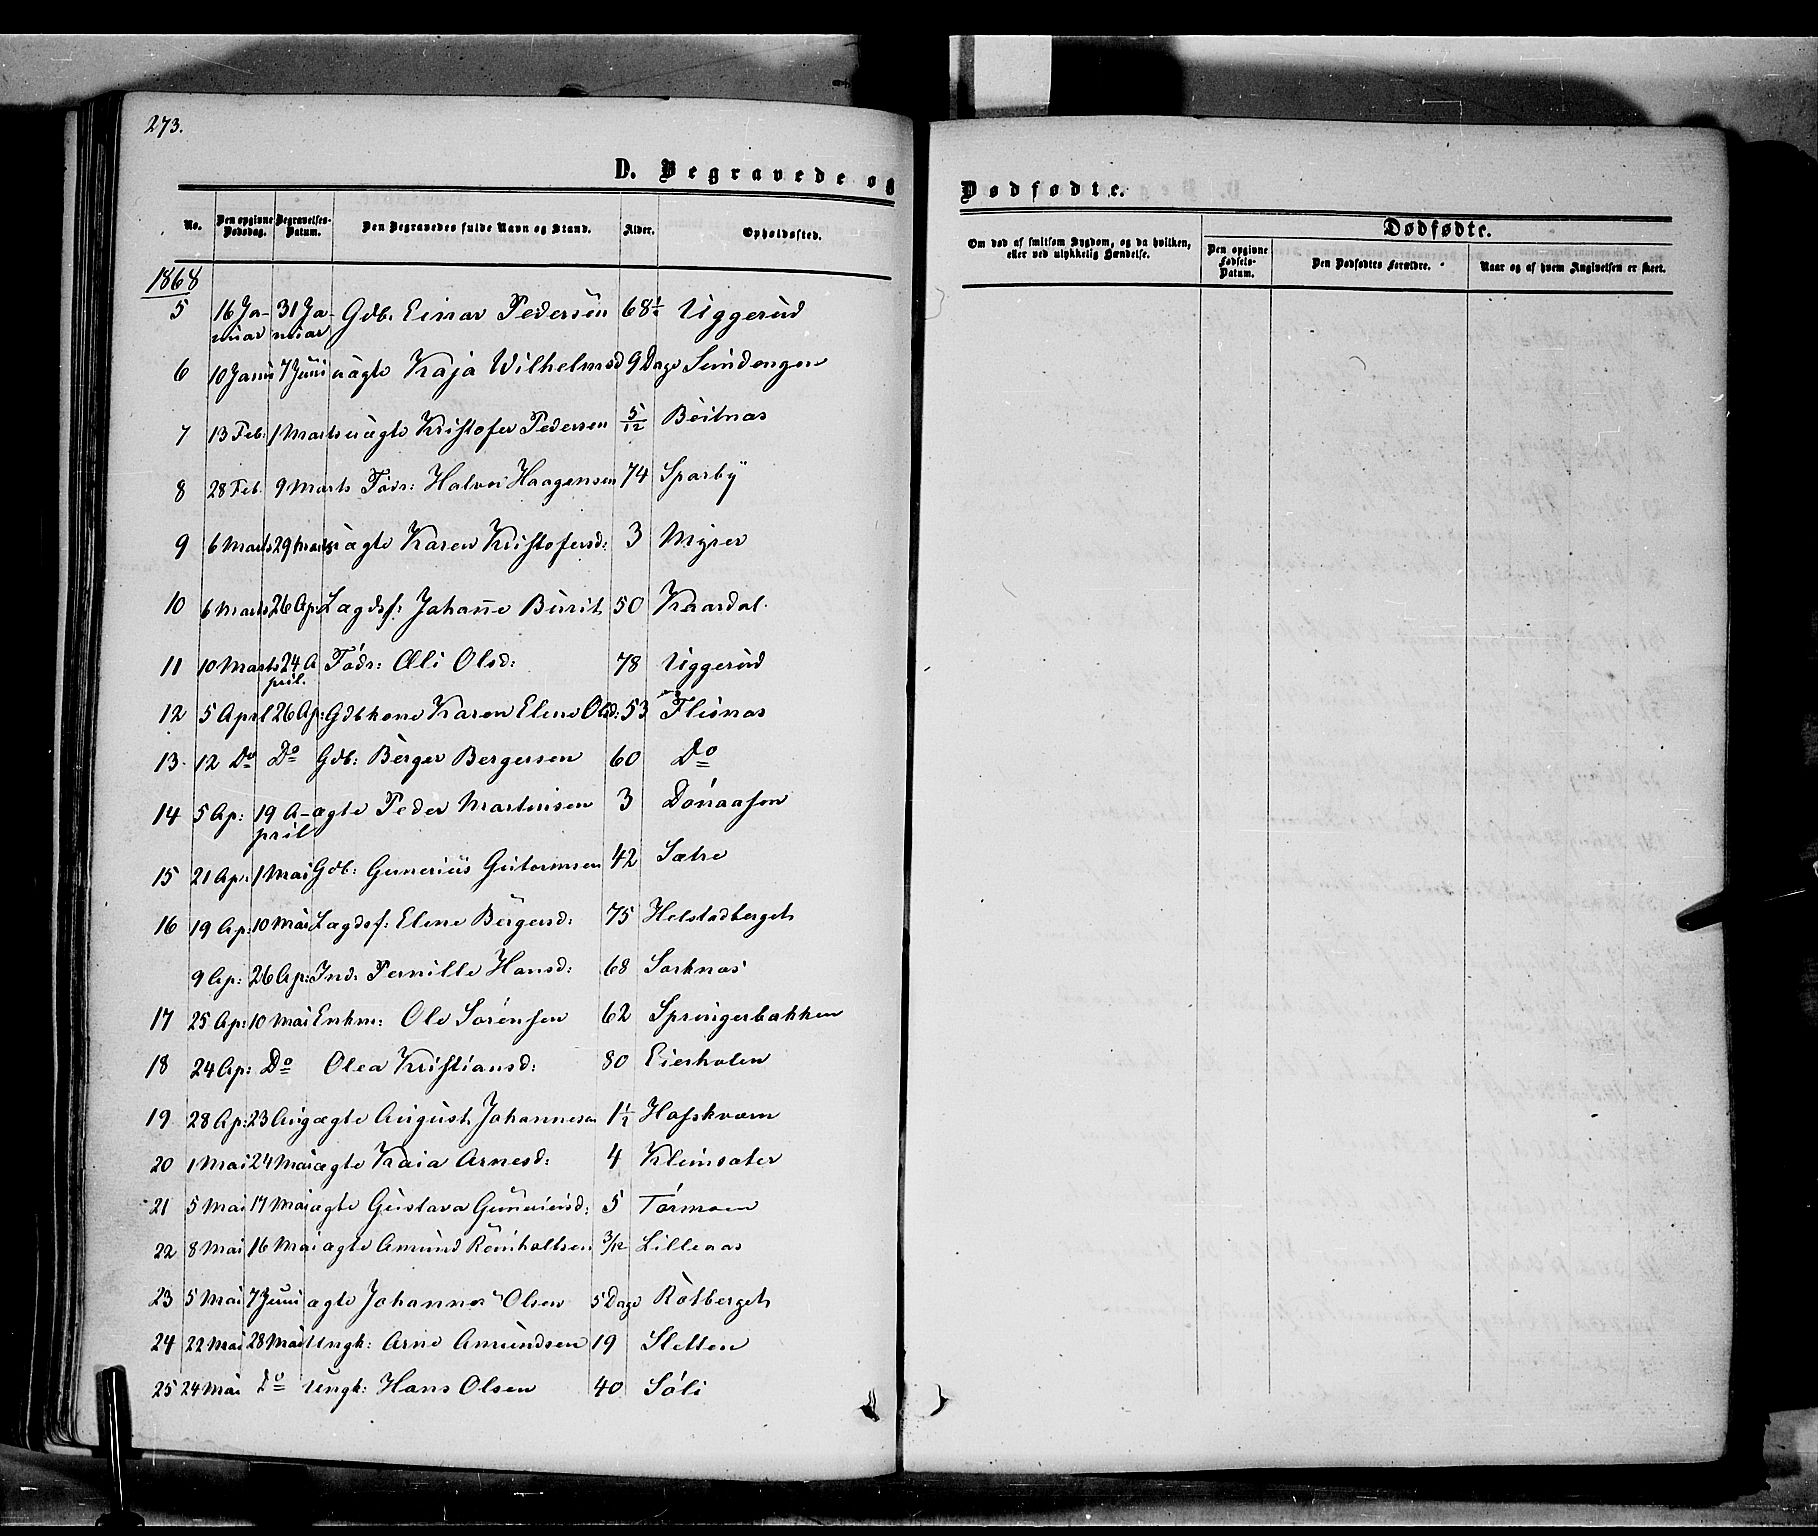 273.
D. Begravede og
No. Den opgivne Dødsdag. Begravelses-Datum. Den Begravedes fulde Navn og Stand. Alder. Opholdssted.
1868
5 16 Januar 31 Januar Gdb. Einar Pedersen 68½ Uggerud
6 10 Januar 7 Juni uægte Kaja Wilhelmsd 9 Dage Sundengen
7 13 Feb: 1 Marts uægte Kristofer Pedersen 5/12 Beitnæs
8 28 Feb. 9 Marts Fødr: Halvor Haagensen 74 Sparby
9 6 Marts 29 Marts uægte Karen Kristofersd: 3 Myrer
10 6 Marts 26 Ap: Lægdsf: Johanne Burit 50 Kaardal.
11 10 Marts 24 April. Fødr: Oli Olsd: 78 Uggerud
12 5 April 26 Ap: Gdbkone Karen Eline Olsd: 53 Flisnæs
13 12 Do Do Gdb: Berger Bergersen 60 Do
14 5 Ap: 19 April ægte Peder Martinsen 3 Dónaasen
15 21 Ap: 1 Mai Gdb: Gunerius Gutormsen 42 Sætre
16 19 Ap: 10 Mai Lægdsf: Eline Bergersd: 75 Helstadberget
9 Ap: 26 Ap: Ind: Pernille Hansd: 68 Sorknæs
17 25 Ap: 10 Mai Enkm: Ole Sórensen 62 Springerbakken
18 24 Ap: Do Olea Kristiansd: 80 Eierholen
19 28 Ap: 23 Aug ægte August Johannesen 1½ Hofskværn
20 1 Mai 24 Mai ægte Kaia Arnesd: 4 Kleinsæter
21 5 Mai 17 Mai ægte Gustava Guneriusd: 5 Tórmoen
22 8 Mai 16 Mai ægte Amund Reinholtsen 3/12 Lilleaas
23 5 Mai 7 Juni ægte Johannes Olsen 5 Dage Rótberget
24 22 Mai 28 Mai Ungk: Arne Amundsen 19 Sletten
25 24 Mai Do Ungk: Hans Olsen 40 Sóli
Dødfødte.
Om død af smitsom Sygdom, og da hvilken, eller ved ulykkelig Hændelse.
Dødfødte.
Den opgivne Fødsels-Datum. Den Dødfødtes Forældre. Naar og af hvem Angivelsen er skeet.